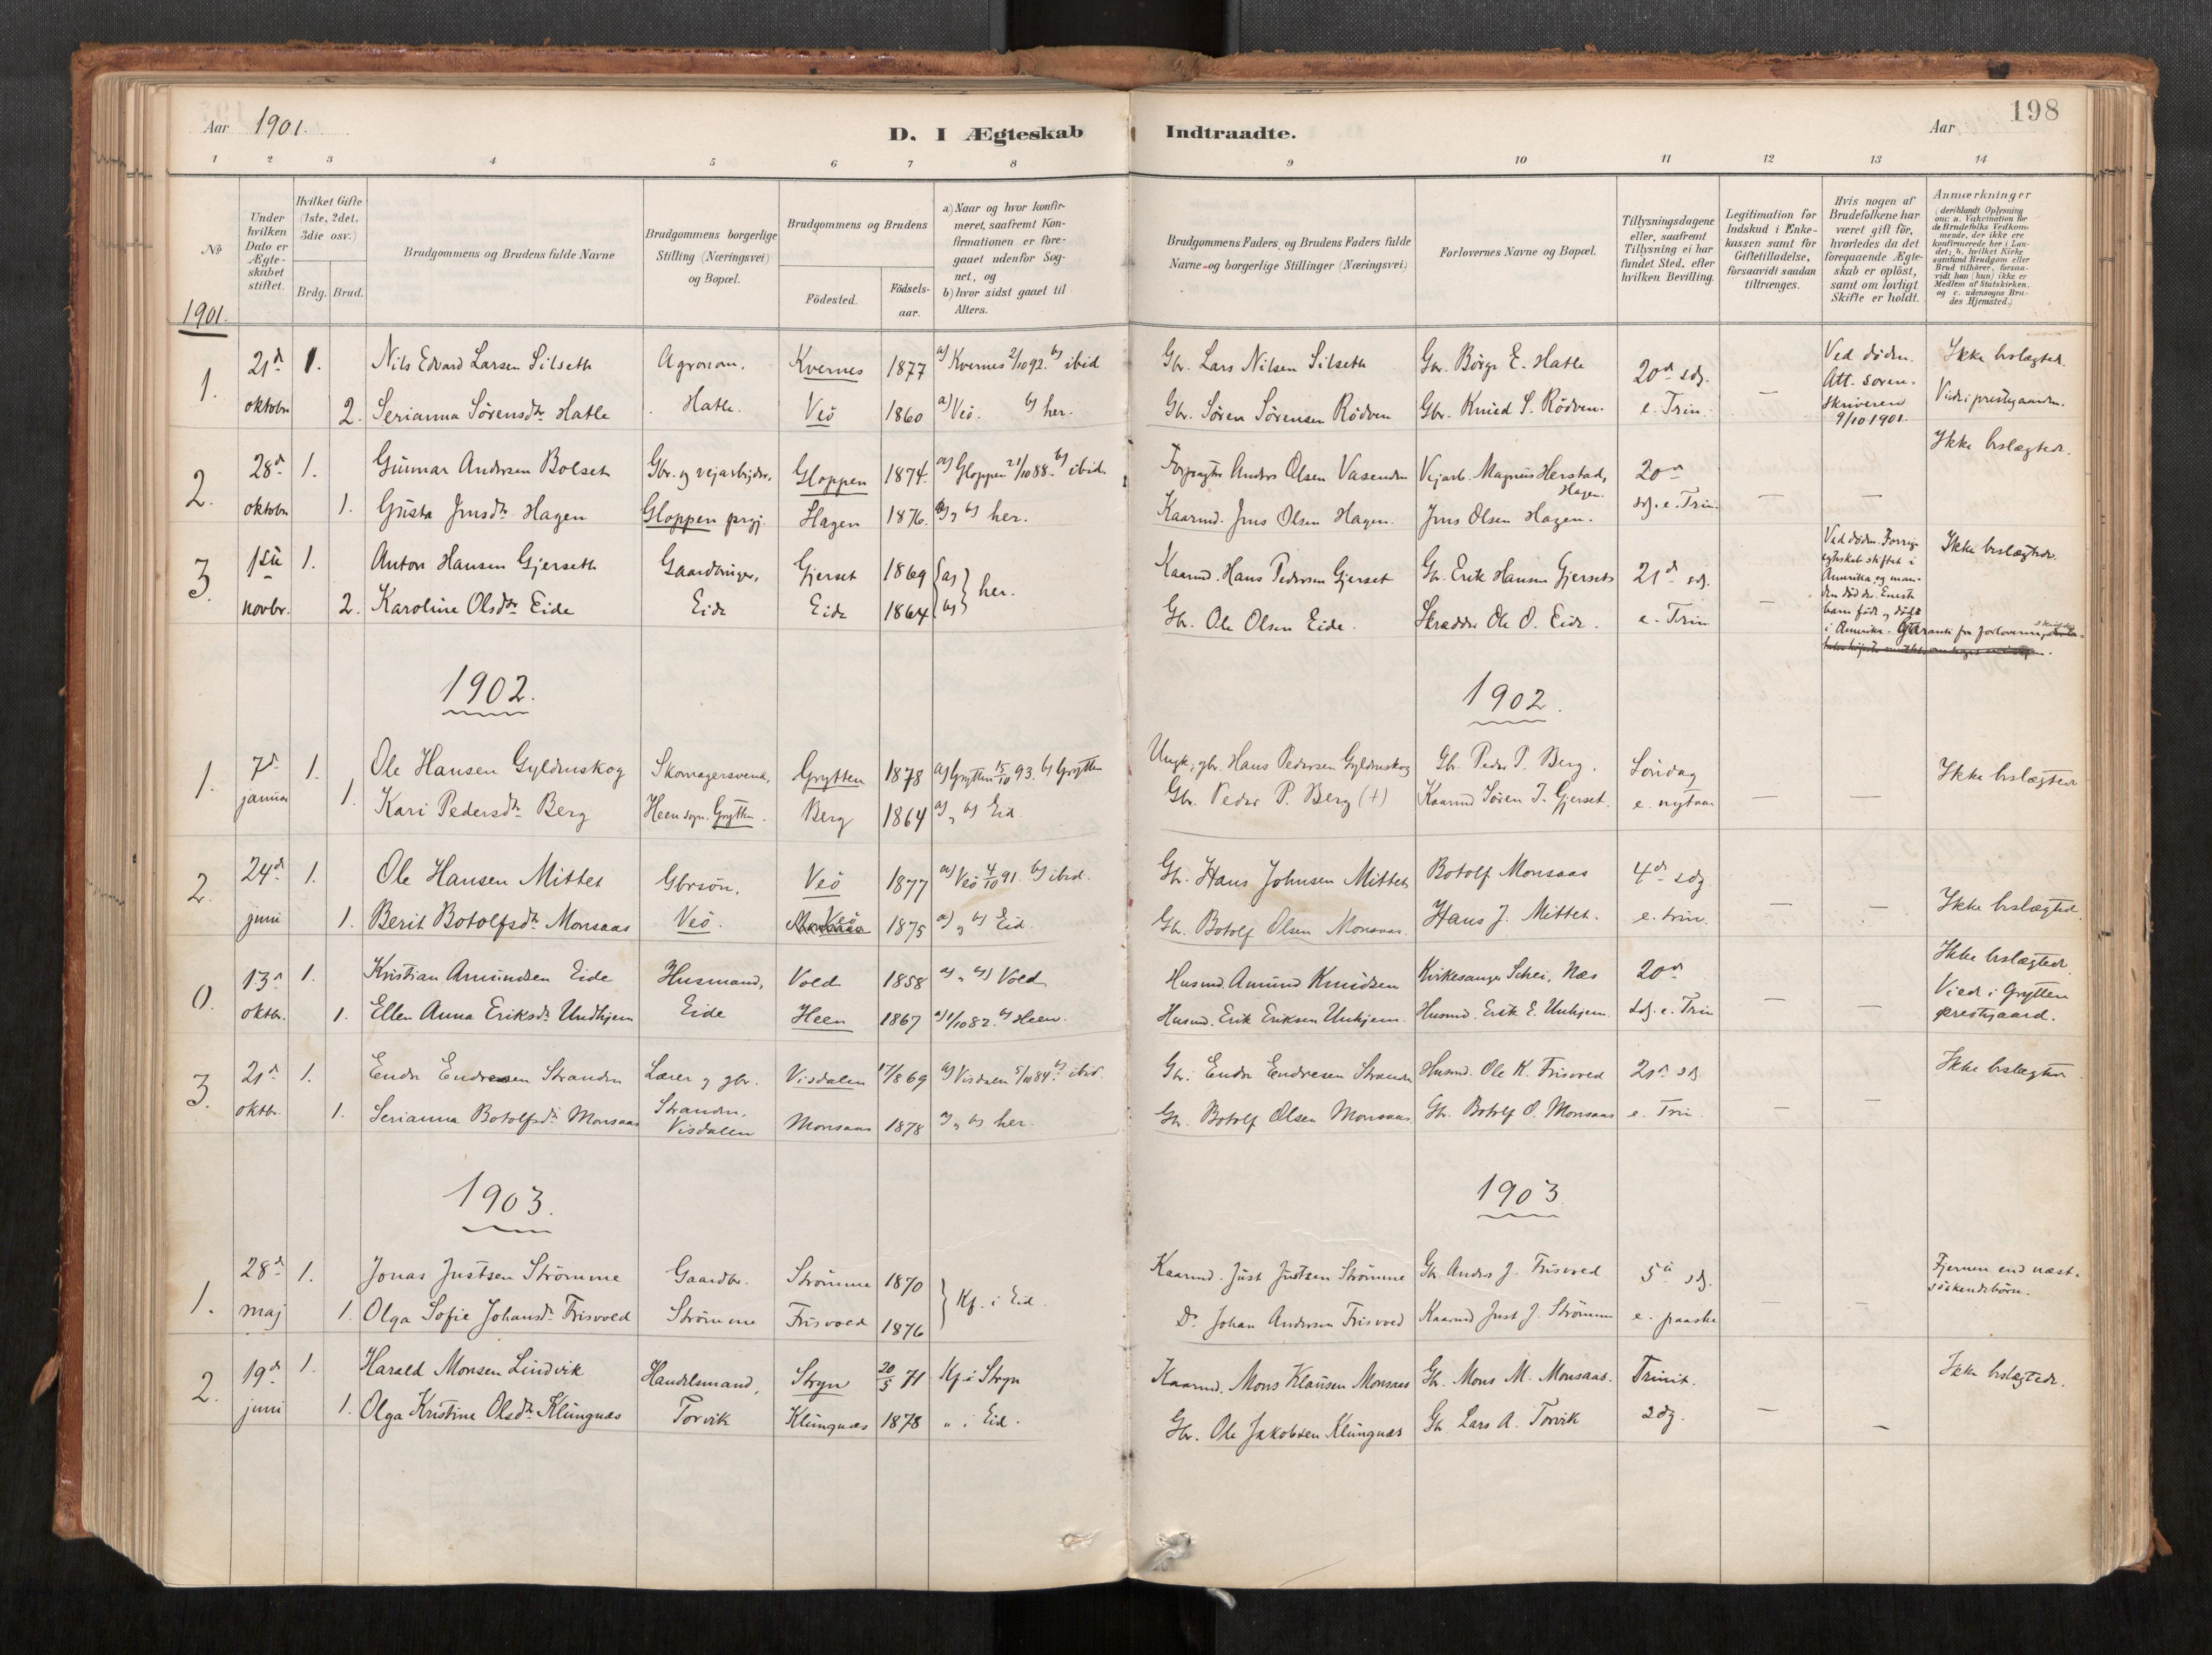 198
Aar 1901.
D. I Ægteskab Indtraadte.
Aar
1 2 3 4 5 6 7 8 9 10 11 12 13 14
№
Under hvilken Dato er Ægteskabet stiftet.
Hvilket Gifte (1ste, 2det, 3die osv.)
Brdg. Brud.
Brudgommens og Brudens fulde Navne
Brudgommens borgerlige Stilling (Næringsvei) og Bopæl.
Brudgommens og Brudens
Födested.
Födselsaar.
a) Naar og hvor konfirmeret, saafremt Konfirmationen er foregaaet udenfor Sognet, og
b) hvor sidst gaaet til Alters.
Brudgommens Faders, og Brudens Faders fulde Navne og borgerlige Stillinger (Næringsvei)
Forlovernes Navne og Bopæl.
Tillysningsdagene eller, saafremt Tillysning ei har fundet Sted, efter hvilken Bevilling.
Legitimation for Indskud i Enkekassen samt for Giftetilladelse, forsaavidt saadan tiltrænges.
Hvis nogen af Brudefolkene har været gift för, hvorledes da det foregaaende Ægteskab er oplöst, samt om lovligt Skifte er holdt.
Anmærkninger (deriblandt Oplysning om: a. Vakcination for de Brudefolks Vedkommende, der ikke ere konfirmerede her i Landet; b. hvilket Kirkesamfund Brudgom eller Brud tilhörer, forsaavidt han (hun) ikke er Medlem af Statskirken. og c. udensogns Brudes Hjemsted.)
1901.
1. 21d 1. Nils Edvard Larsen Silseth Agronom. Kvernes 1877 a) Kvernes 2/10 92. b) ibid Gbr. Lars Nilsen Silseth Gbr. Börge E. Hatle 20d sdg. Ved döden. Ikke beslægted.
oktober 2. Serianna Sörensdtr Hatle Hatle. Veö 1860 a) Veö. b) her. Gbr. Sören Sörensen Rödven Gbr. Knud S. Rödven. e. Trin. — Att. soren-
skriveren 9/10 1901. Viede i prestegaarden.
2. 28d 1. Gunnar Andersen Bolset Gbr. og vejarbejder, Gloppen 1874. a) Gloppen 21/10 88. b) ibid. Anders Olsen Vasenden Vejarb. Magnus Herstad, Hagen. 20d Ikke beslægtede.
oktober 1. Gusta Jensdtr Hagen Gloppen prgj. Hagen 1876. a) „ b) her. Kaarmd. Jens Olsen Hagen. Jens Olsen Hagen. sdg. e. Trin. — —
3. 1ste 1. Anton Hansen Gjerseth Gaardbruger, Gjerset 1869 a) her. Kaarmd. Hans Pedersen Gjerset Gbr. Erik Hansen Gjerset 21d sdg. Ikke beslægtede.
novbr. 2. Karoline Olsdtr Eide Eide Eide 1864 b) Gbr. Ole Olsen Eide. Skrædder Ole O. Eide. e. Trin —
Ved døden. Forrige
egteskab stiftet i
Amerika, og man-
den död der. Eneste
barn födt og död
i Amerika. Garanti fra forloverne,
1902. 1902.
1. 7d 1. Ole Hansen Gyldenskog Skomagersvend, Grytten 1878 a) Grytten 15/10 93. b) Grytten Ungk., gbr. Hans Pedersen Gyldenskog Gbr. Peder P. Berg. Söndag Ikke beslægtede
januar 1. Kari Pedersdtr Berg Heen sogn. Grytten. Berg 1864 a) „ b) Eid. Gbr. Peder P. Berg (+) Kaarmd Sören J. Gjerset. e. nytaar — —
2. 24d 1. Ole Hansen Mittet Gbrsön, Veö 1877 a) Veö 4/10 91. b) ibid. Gbr. Hans Johnsen Mittet Botolf Monsaas 4d sdg
juni 1. Berit Botolfsdtr Monsaas Veö. Veö 1875 a) „ b) Eid. Gbr. Botolf Olsen Monsaas. Hans J. Mittet. e. trin. — — Ikke beslægted.
0. 13d 1. Kristian Amundsen Eide Husmand, Vold 1858 a) „ b) Vold Husmd. Amund Knudsen Kirkesanger Schei, Næs 20d Ikke beslægtede.
oktbr. 1. Ellen Anna Eriksdtr Undhjem Eide Heen 1867 a) 1/10 82. b) Heen. Husmd. Erik Eriksen Unhjem. Husmd. Erik E. Unhjem. sdg. e. Trin — — Viede i Grytten
prestegaard.
3. 21d 1. Endre Endresen Stranden Lærer og gbr. Visdalen 17/8 69 a) Visdalen 5/10 84. b) ibid. Gbr. Endre Endresen Stranden Husmd. Ole K. Frisvold 21d sdg. Ikke beslægtede.
oktbr. 1. Serianna Botolfsdtr Monsaas Stranden, Visdalen Monsaas 1878 a) „ b) her. Gbr. Botolf Olsen Monsaas. Gbr. Botolf O. Monsaas e. Trin. — —
1903. 1903.
1. 28d 1. Jonas Justsen Strömme Gaardbr. Strömme 1870 Kf. i Eid. Kaarmd. Just Justsen Strömme Gbr. Anders J. Frisvold 5te sdg. Fjernere end næst-
söskendebörn.
maj 1. Olga Sofie Johansdtr Frisvold Strömme Frisvold 1876 Do Johan Andersen Frisvold Kaarmd Just J. Strömme e. paaske — —
2. 19d 1. Harald Monsen Lindvik Handelsmand, Stryn 20/5 71 Kf. i Stryn Kaarmd. Mons Klausen Monsaas Gbr. Mons M. Monsaas. Trinit. Ikke beslægtede.
juni 1. Olga Kristine Olsdtr Klungnæs Torvik Klungnæs 1878 „ i Eid. Gbr. Ole Jakobsen Klungnæs Gbr. Lars A. Torvik sdg. — —